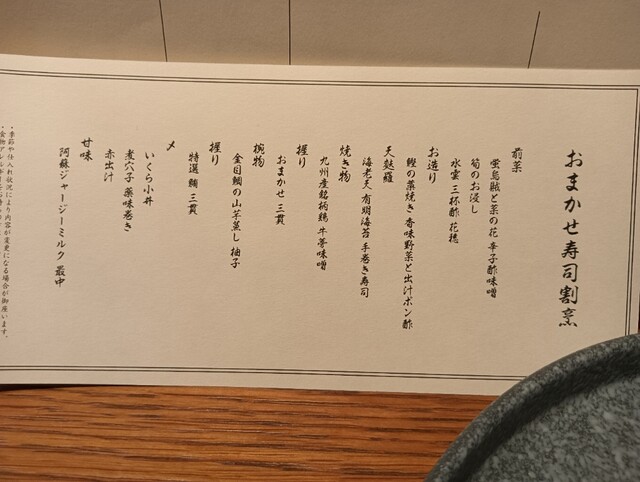 おまかせ寿司割烹
前菜
蛍烏賊と菜の花 辛子酢味噌
筍のお浸し
水雲 三杯酢 花穂
お造り
鰹の藁焼き 香味野菜と出汁ポン酢
天麩羅
海老天 有明海苔 手巻き寿司
焼き物
九州産銘柄鶏 牛蒡味噌
握り
おまかせ 三貫
椀物
金目鯛の山芋蒸し 柚子
握り
特選 鮪 三貫
〆
いくら小丼
煮穴子 薬味巻き
赤出汁
甘味
阿蘇ジャージーミルク 最中
・季節や仕入れ状況により内容が変更になる場合が御座います。